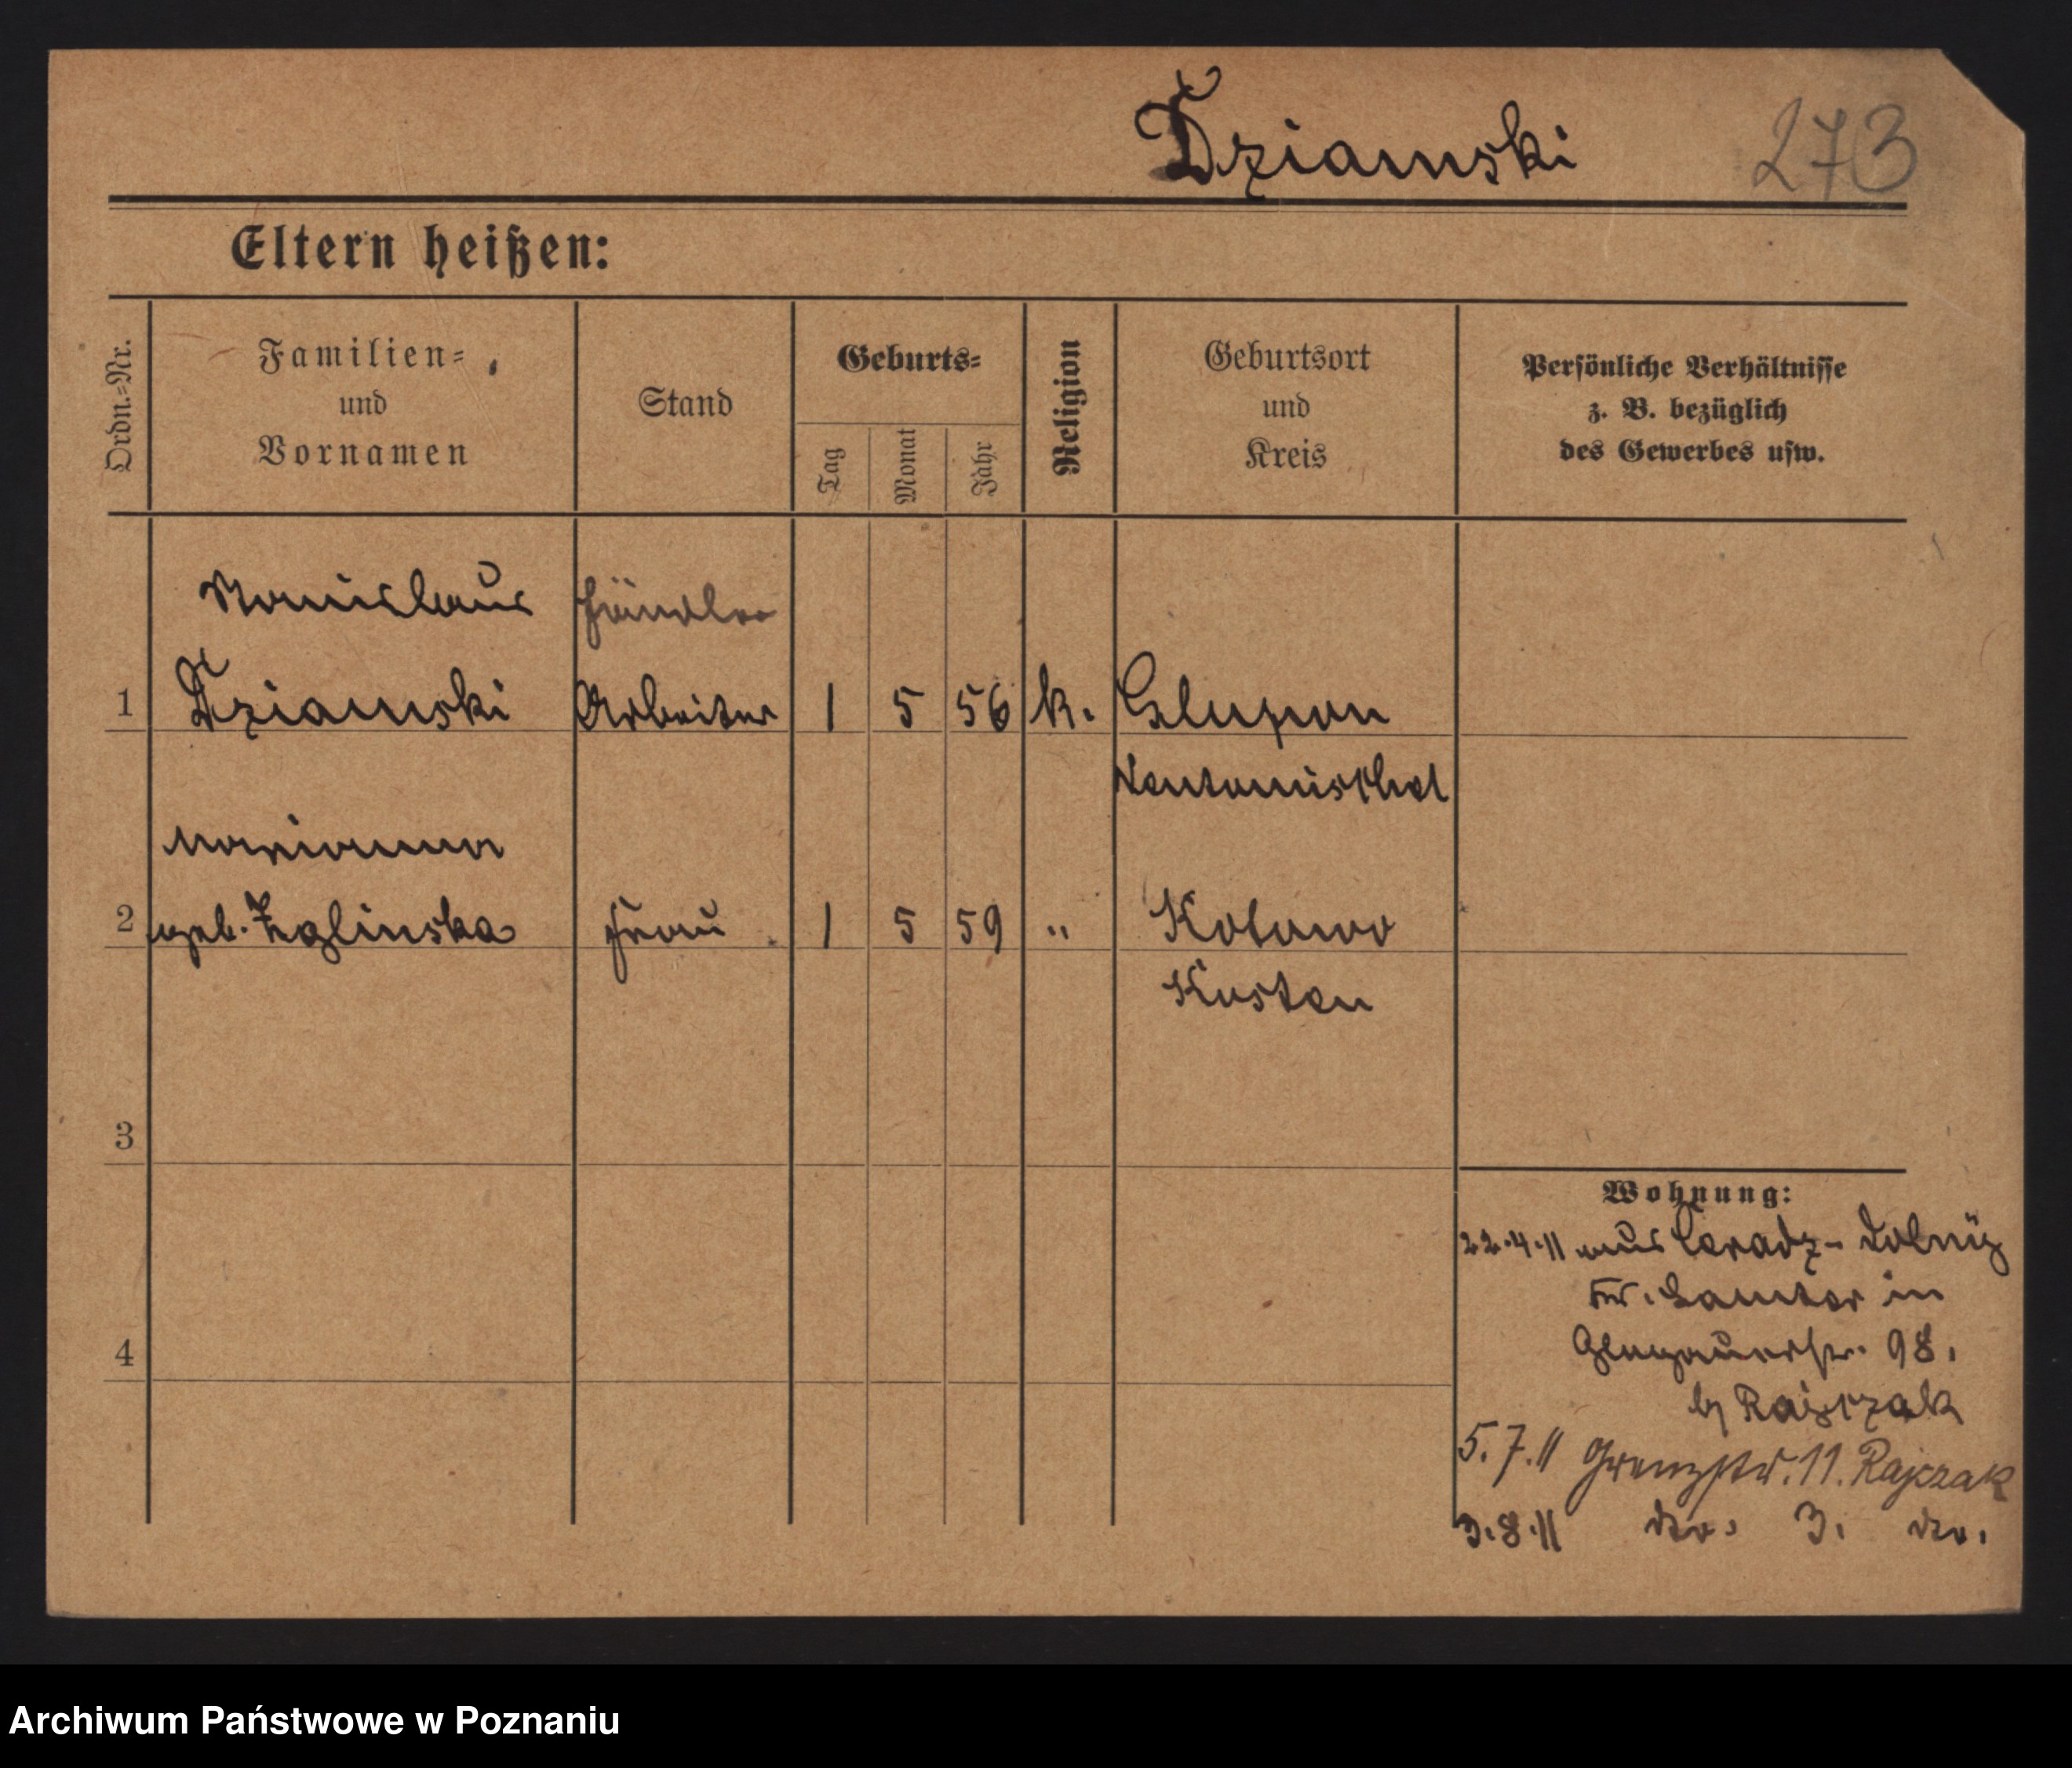 Dziamski 273
Eltern heißen:
Ordn.=Nr.
Familien=
und
Vornamen
Stand
Geburts=
Tag
Monat
Jahr
Religion
Geburtsort
und
Kreis
Persönliche Verhältnisse
z. B. bezüglich
des Gewerbes usw.
Händler
1 Dziamski Arbeiter 1 5 56 k. Glupon
Neutomischel
Marianna
2 geb. Zglinska Frau 1 5 59 " Kotowo
Kosten
3
4
Wohnung:
22.4.11 aus Ceradz-Dolny
Kr. Samter in
Glogauerstr. 98.
b/ Rajczak
5.7.11 Grenzstr. 11. Rajczak
3.8.11 do. 3. do.
Archiwum Państwowe w Poznaniu